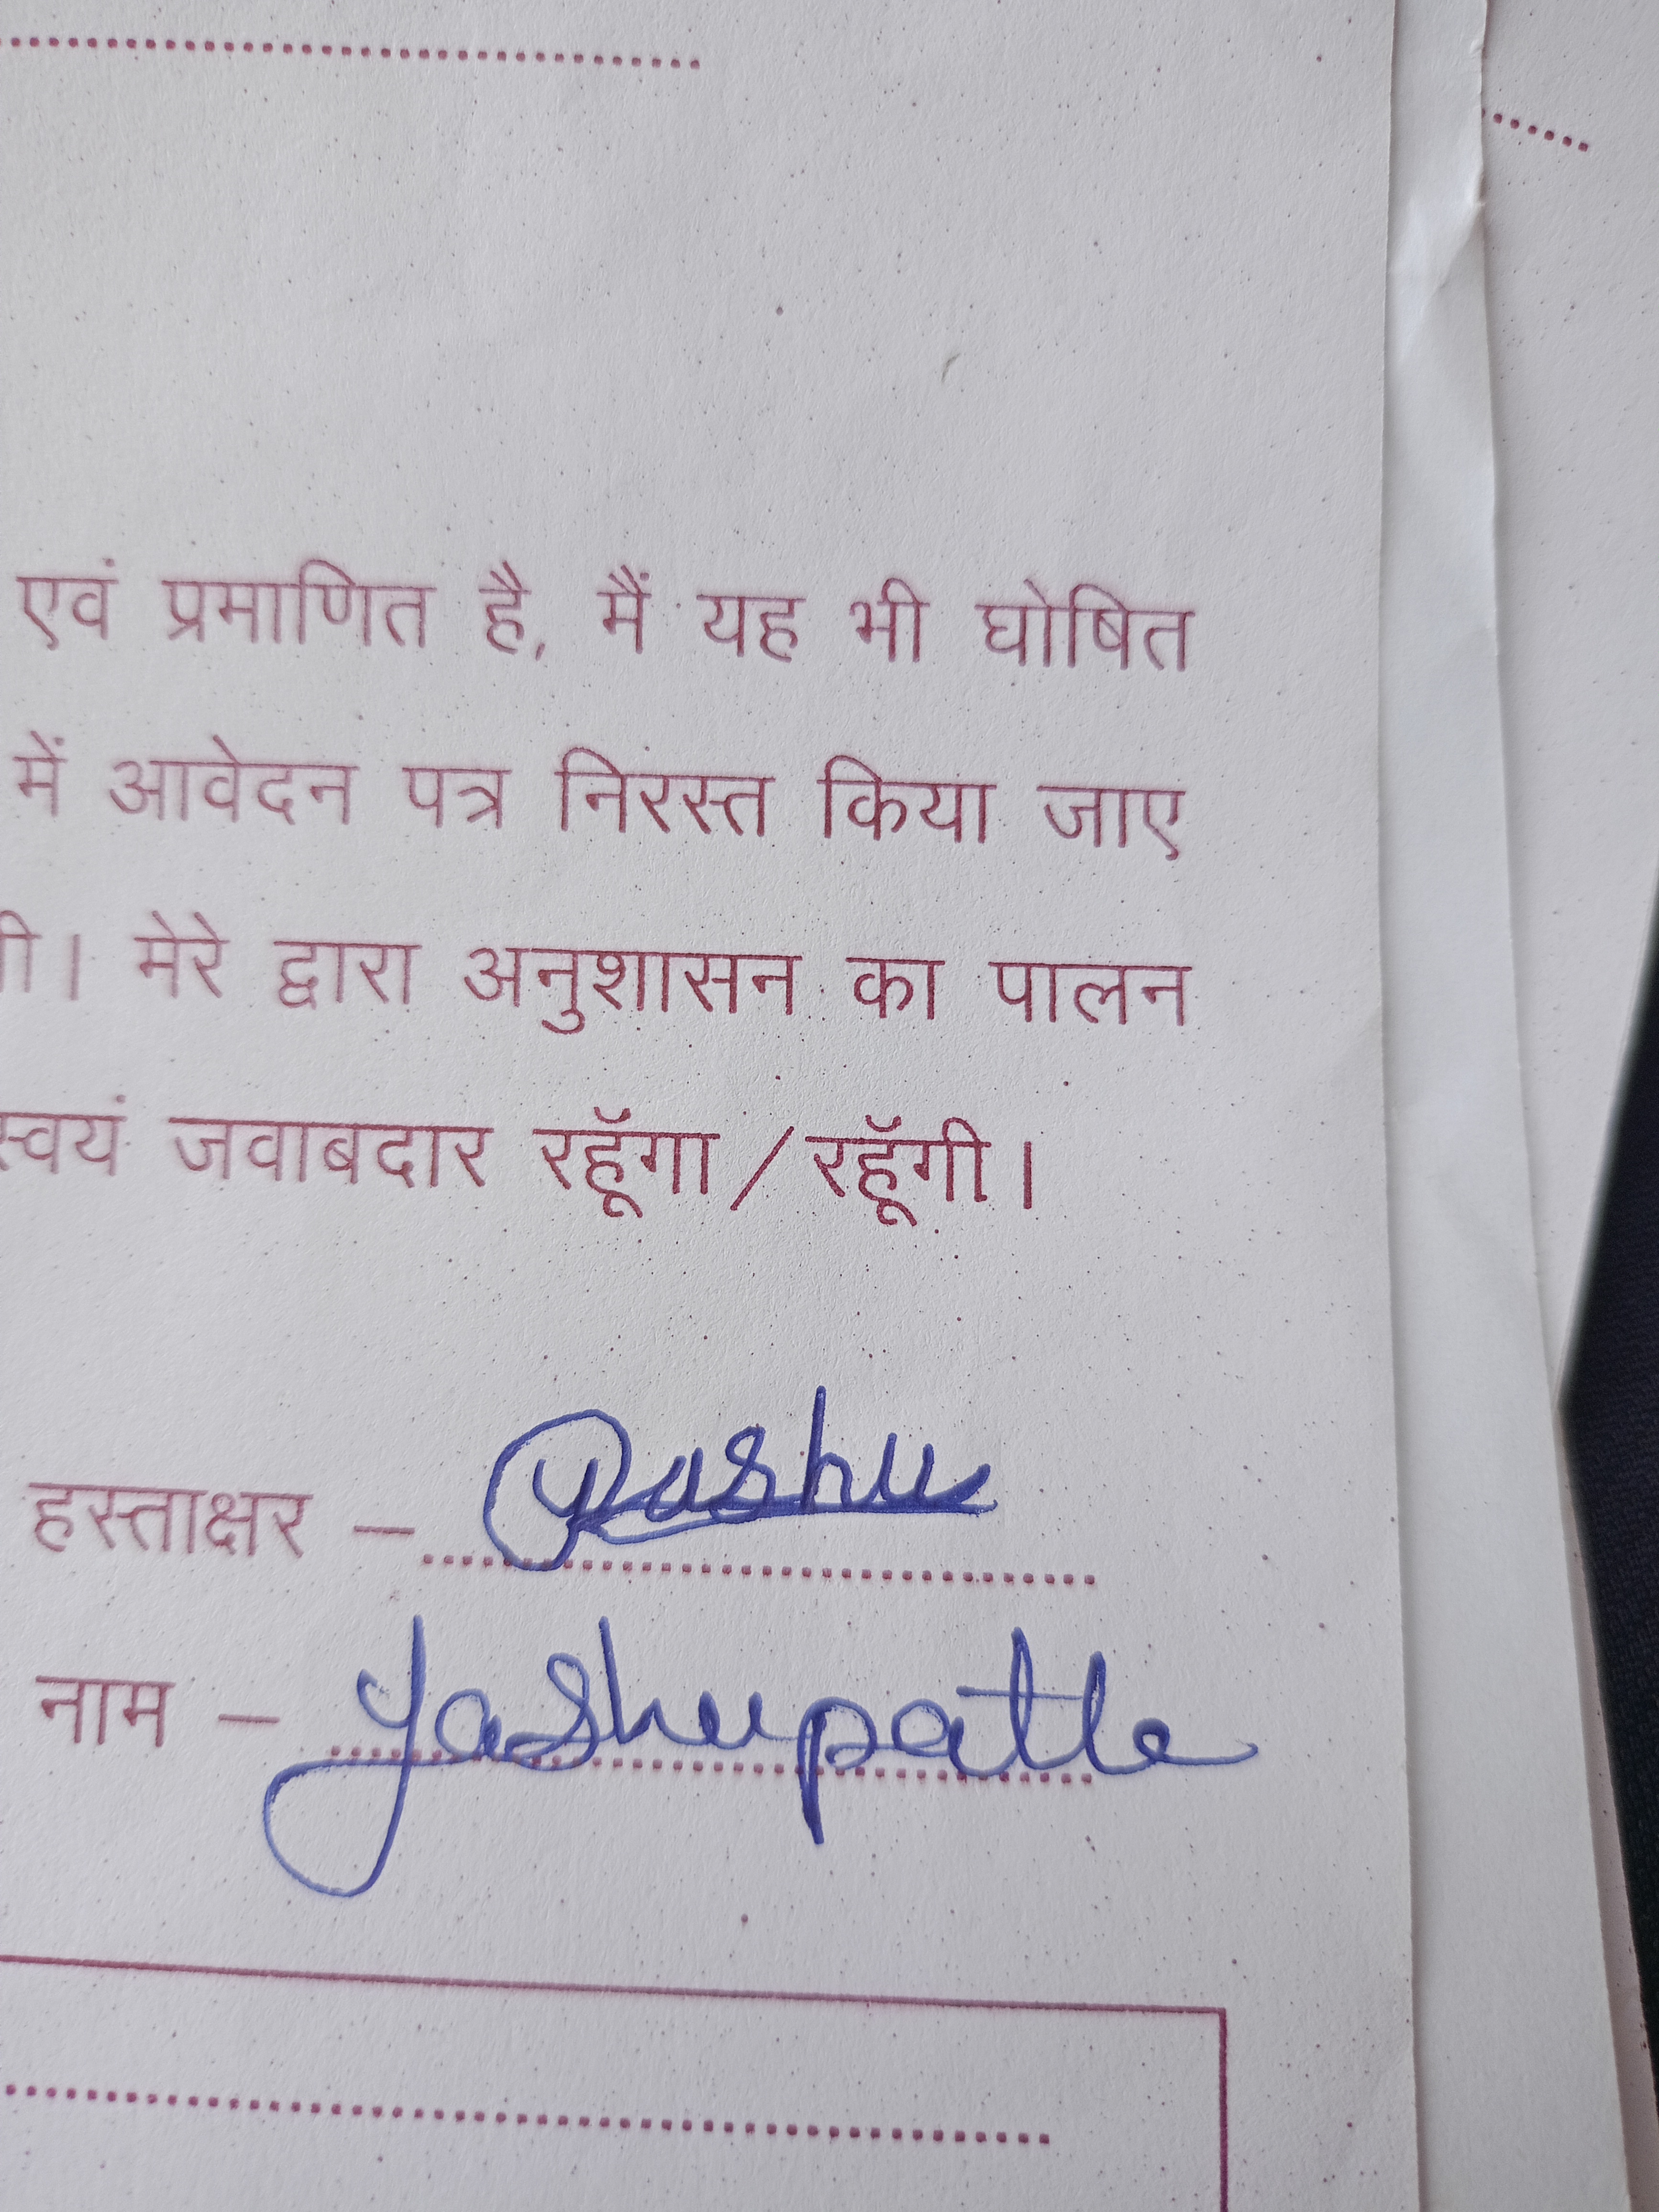 एवं प्रमाणित है, मैं यह भी घोषित
में आवेदन पत्र निरस्त किया जाए
। मेरे द्वारा अनुशासन का पालन
स्वयं जवाबदार रहूॅंगा / रहूॅंगी।
हस्ताक्षर – Yashu
नाम – Yashupatle